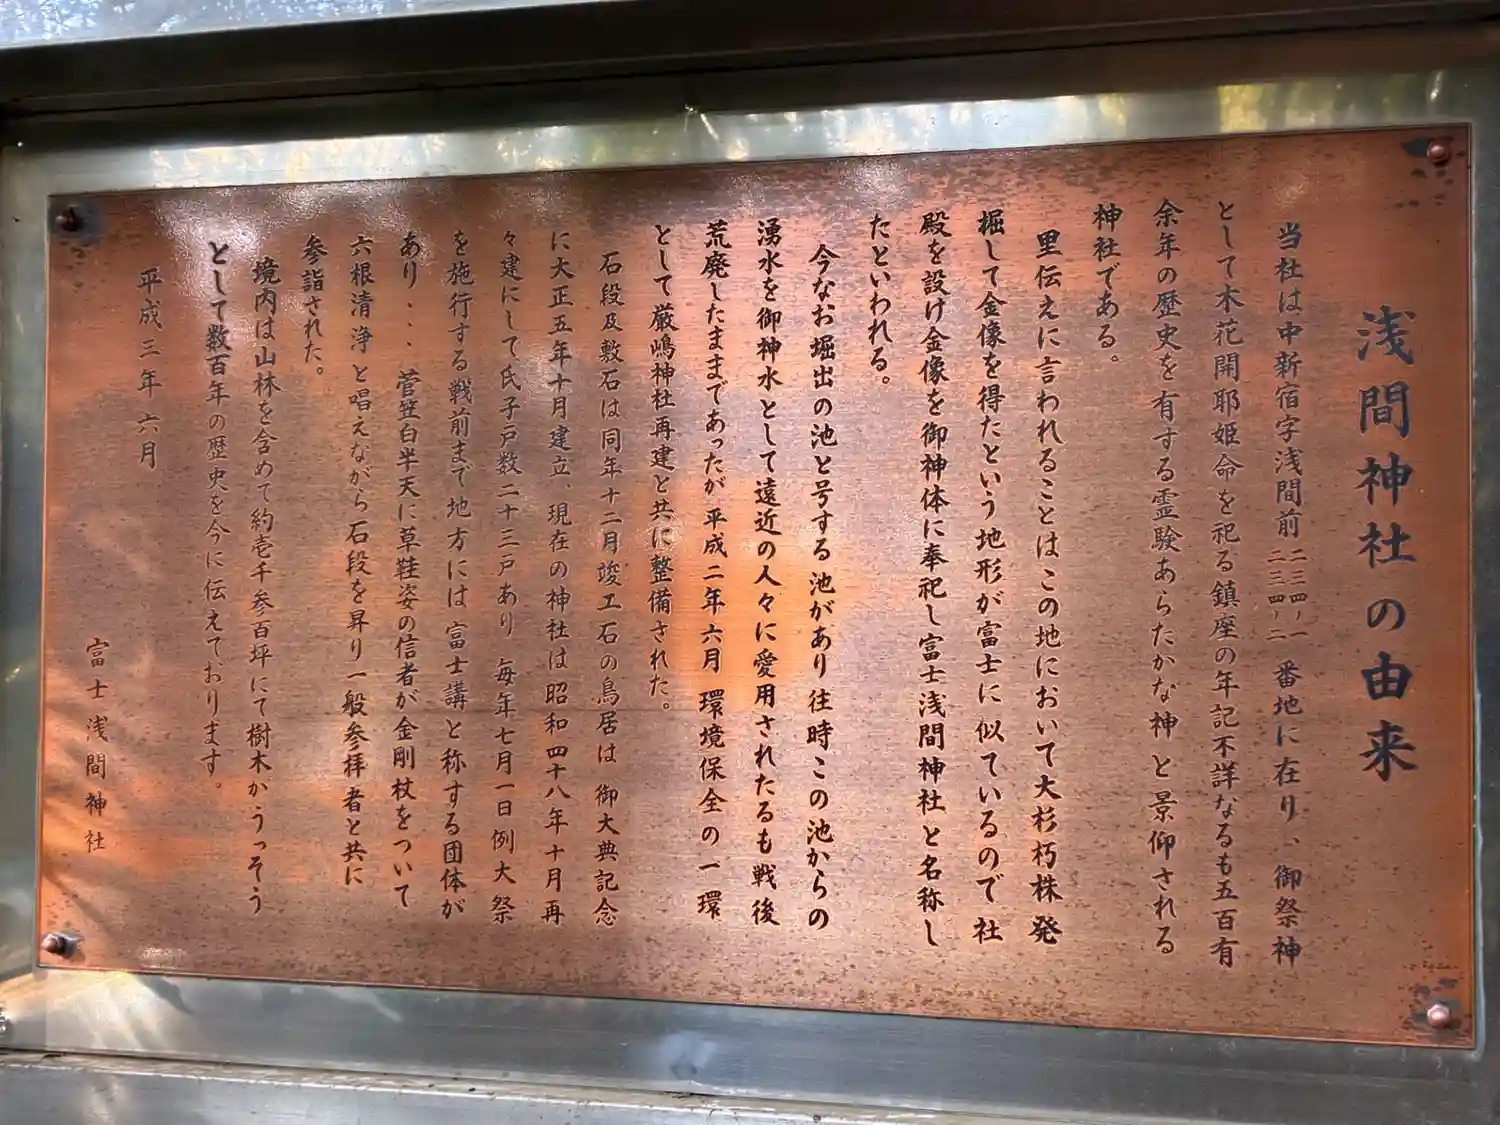 浅間神社の由来
当社は中新宿字浅間前二三四ー一二三四ー二番地に在り、御祭神
として木花開耶姫命を祀る鎮座の年記不詳なるも五百有
余年の歴史を有する霊験あらたかな神と景仰される
神社である。
里伝えに言われることはこの地において大杉朽株発
掘して金像を得たという地形が富士に似ているので社
殿を設け金像を御神体に奉祀し富士浅間神社と名称し
たといわれる。
今なお堀出の池と号する池があり往時この池からの
湧水を御神水として遠近の人々に愛用されたるも戦後
荒廃したままであったが平成二年六月環境保全の一環
として厳嶋神社再建と共に整備された。
石段及敷石は同年十二月竣工石の鳥居は御大典記念
に大正五年十月建立、現在の神社は昭和四十八年十月再
々建にして氏子戸数二十三戸あり毎年七月一日例大祭
を施行する戦前まで地方には富士講と称する団体が
あり・・・菅笠白半天に草鞋姿の信者が金剛杖をついて
六根清浄と唱えながら石段を昇り一般参拝者と共に
参詣された。
境内は山林を含めて約壱千参百坪にて樹木かうっそう
として数百年の歴史を今に伝えております。
平成三年六月
富士浅間神社